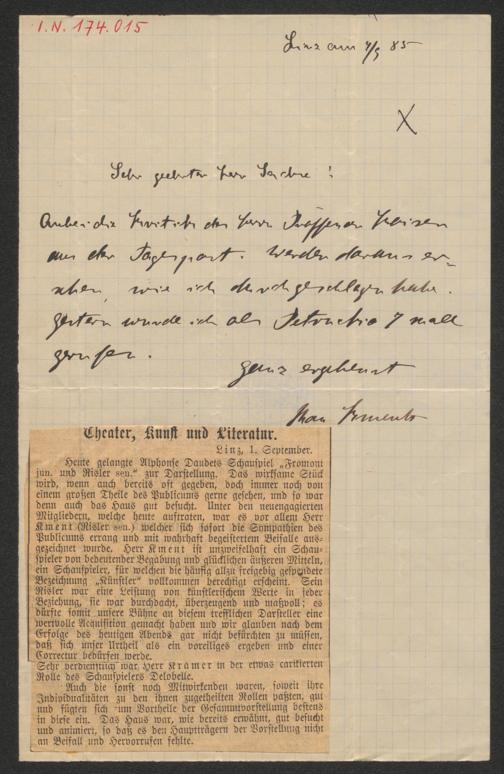 I.N. 174.015
Linz am 4/9 85
X
Sehr geehrter Herr Sachse !
Anbei die Kritik des Herrn Professor
aus der Tagespost. Werden daraus er-
sehen, wie ich durchgeschlagen habe.
Gestern wurde ich als Petruchio 7 mall
gerufen.
Ganz ergebenst
Kment
Theater, Kunst und Literatur.
Linz, 1. September.
Heute gelangte Alphonse Daudets Schauspiel „Fromont
jun. und Risler sen.“ zur Darstellung. Das wirksame Stück
wird, wenn auch bereits oft gegeben, doch immer noch von
einem großen Theile des Publicums gerne gesehen, und so war
denn auch das Haus gut besucht. Unter den neuengagierten
Mitgliedern, welche heute auftraten, war es vor allem Herr
Kment (Risler sen.) welcher sich sofort die Sympathien des
Publicums errang und mit wahrhaft begeistertem Beifalle aus-
gezeichnet wurde. Herr Kment ist unzweifelhaft ein Schau-
spieler von bedeutender Begabung und glücklichen äußeren Mitteln,
ein Schauspieler, für welchen die häufig allzu freigebig gespendete
Bezeichnung „Künstler“ vollkommen berechtigt erscheint. Sein
Risler war eine Leistung von künstlerischem Werte in jeder
Beziehung, sie war durchdacht, überzeugend und maßvoll; es
dürfte somit unsere Bühne an diesem trefflichen Darsteller eine
wertvolle Acquisition gemacht haben und wir glauben nach dem
Erfolge des heutigen Abends gar nicht befürchten zu müssen,
daß sich unser Urtheil als ein voreiliges ergeben und einer
Correctur bedürfen werde.
Sehr verdienstlich war Herr Kramer in der etwas carikierten
Rolle des Schauspielers Delobelle.
Auch die sonst noch Mitwirkenden waren, soweit ihre
Individualitäten zu den ihnen zugetheilten Rollen paßten, gut
und fügten sich zum Vortheile der Gesammtvorstellung bestens
in diese ein. Das Haus war, wie bereits erwähnt, gut besucht
und animiert, so daß es den Hauptträgern der Vorstellung nicht
an Beifall und Hervorrufen fehlte.